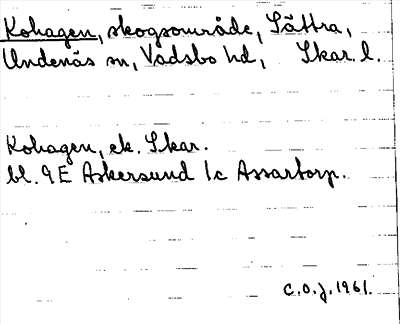 Kohagen, skogsområde, Sättra,
Undenäs sn, Vadsbo hd, Skar. l.
Kohagen, ek. Skar.
bl. 9E Askersund 1c Assartorp.
C.O.J. 1961.